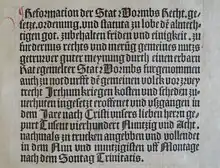 Reformation der Stat Wormbs Recht. ge-
setze. ordenung. vnd statuta zo lobe dē almech-
tigen got. zubehalten friden vnd einigkeit. zu
furdernus rechts vnd merūg gemeines nutzs
getruwer guter meynung durch einen erbarn
Rat gemelter Stat Wormbs furgenommen
auch zu nordurfft dē gemeinen volck vor zwy-
trecht Irethum kriegen kosten vnd scheden zu-
uerhuten ingesetzt eroffenet vnd vßgangen in
dem Jare nach Cristi vnsers lieben hern ge-
purt Tusent vierhundert Nüntzig vnd Acht.
nachmals zu trucken angeben vnd vollendet
in dem Nün vnd nüntzigisten vff Montage
nach dem Sontag Trinitatis.